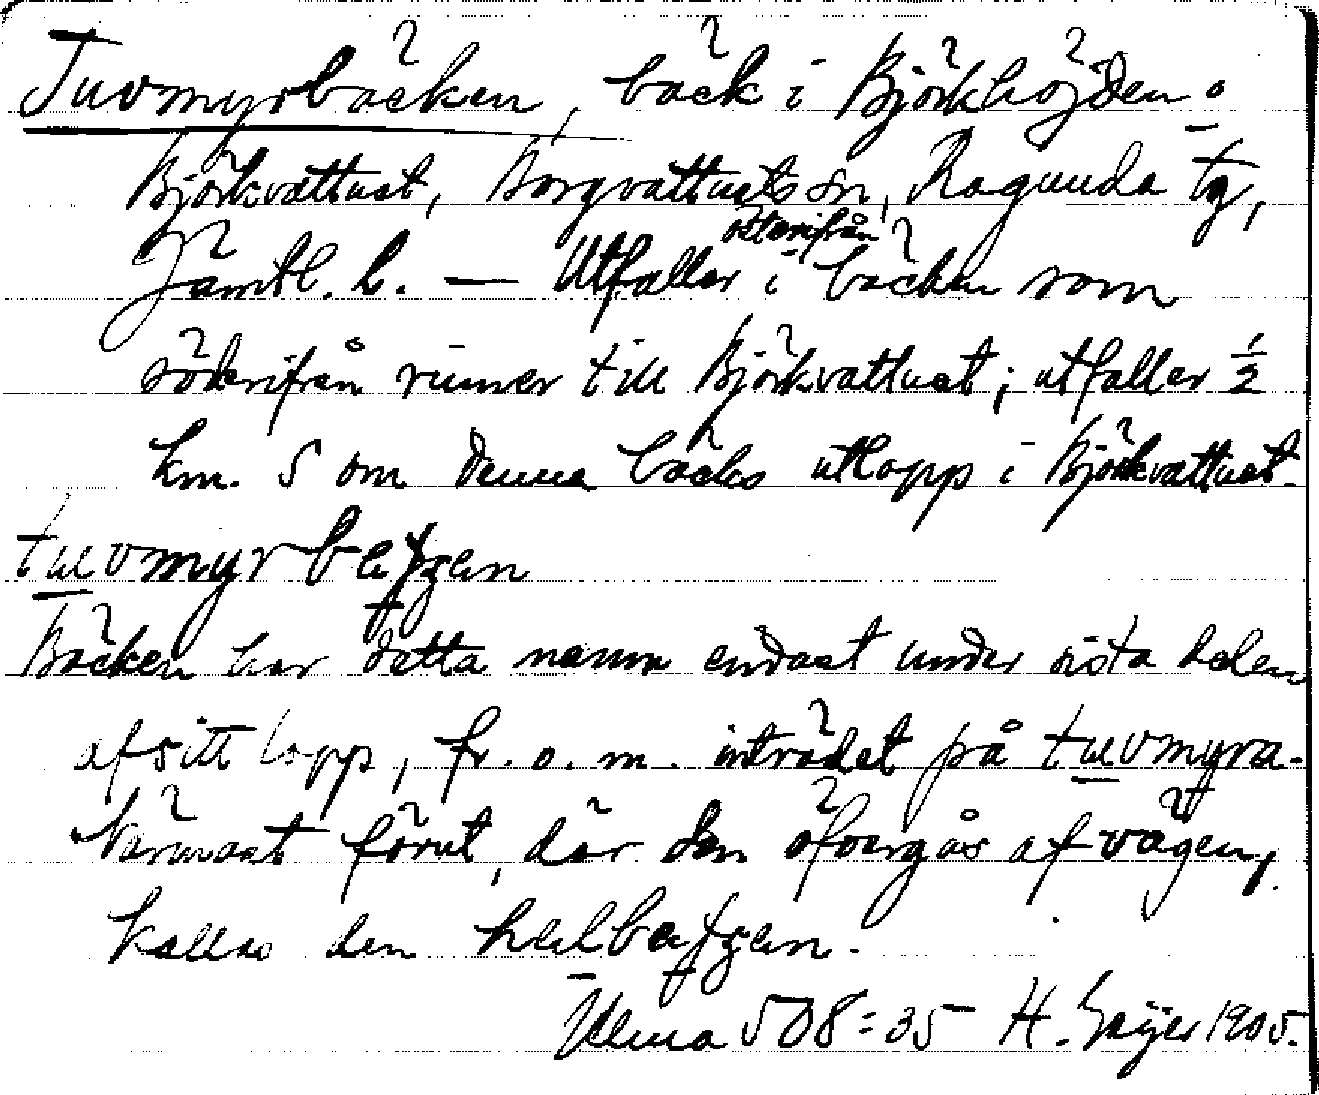 Tuvmyrbäcken, bäck i Björkhöjden o.
Björkvattnet, Borgvattnets sn, Ragunda tg,
Jämtl. l. — Utfaller österifrån i bäcken som
söderifrån rinner till Björkvattnet; utfaller ½
km. S om denna bäcks utlopp i Björkvattnet.
Bäcken har detta namn endast under sista delen
af sitt lopp, fr. o. m. inträdet på tuvmyra.
Närmast förut, där den öfvergås af vägen,
kallas den
Ulma 508:35 H. Geijer 1905.